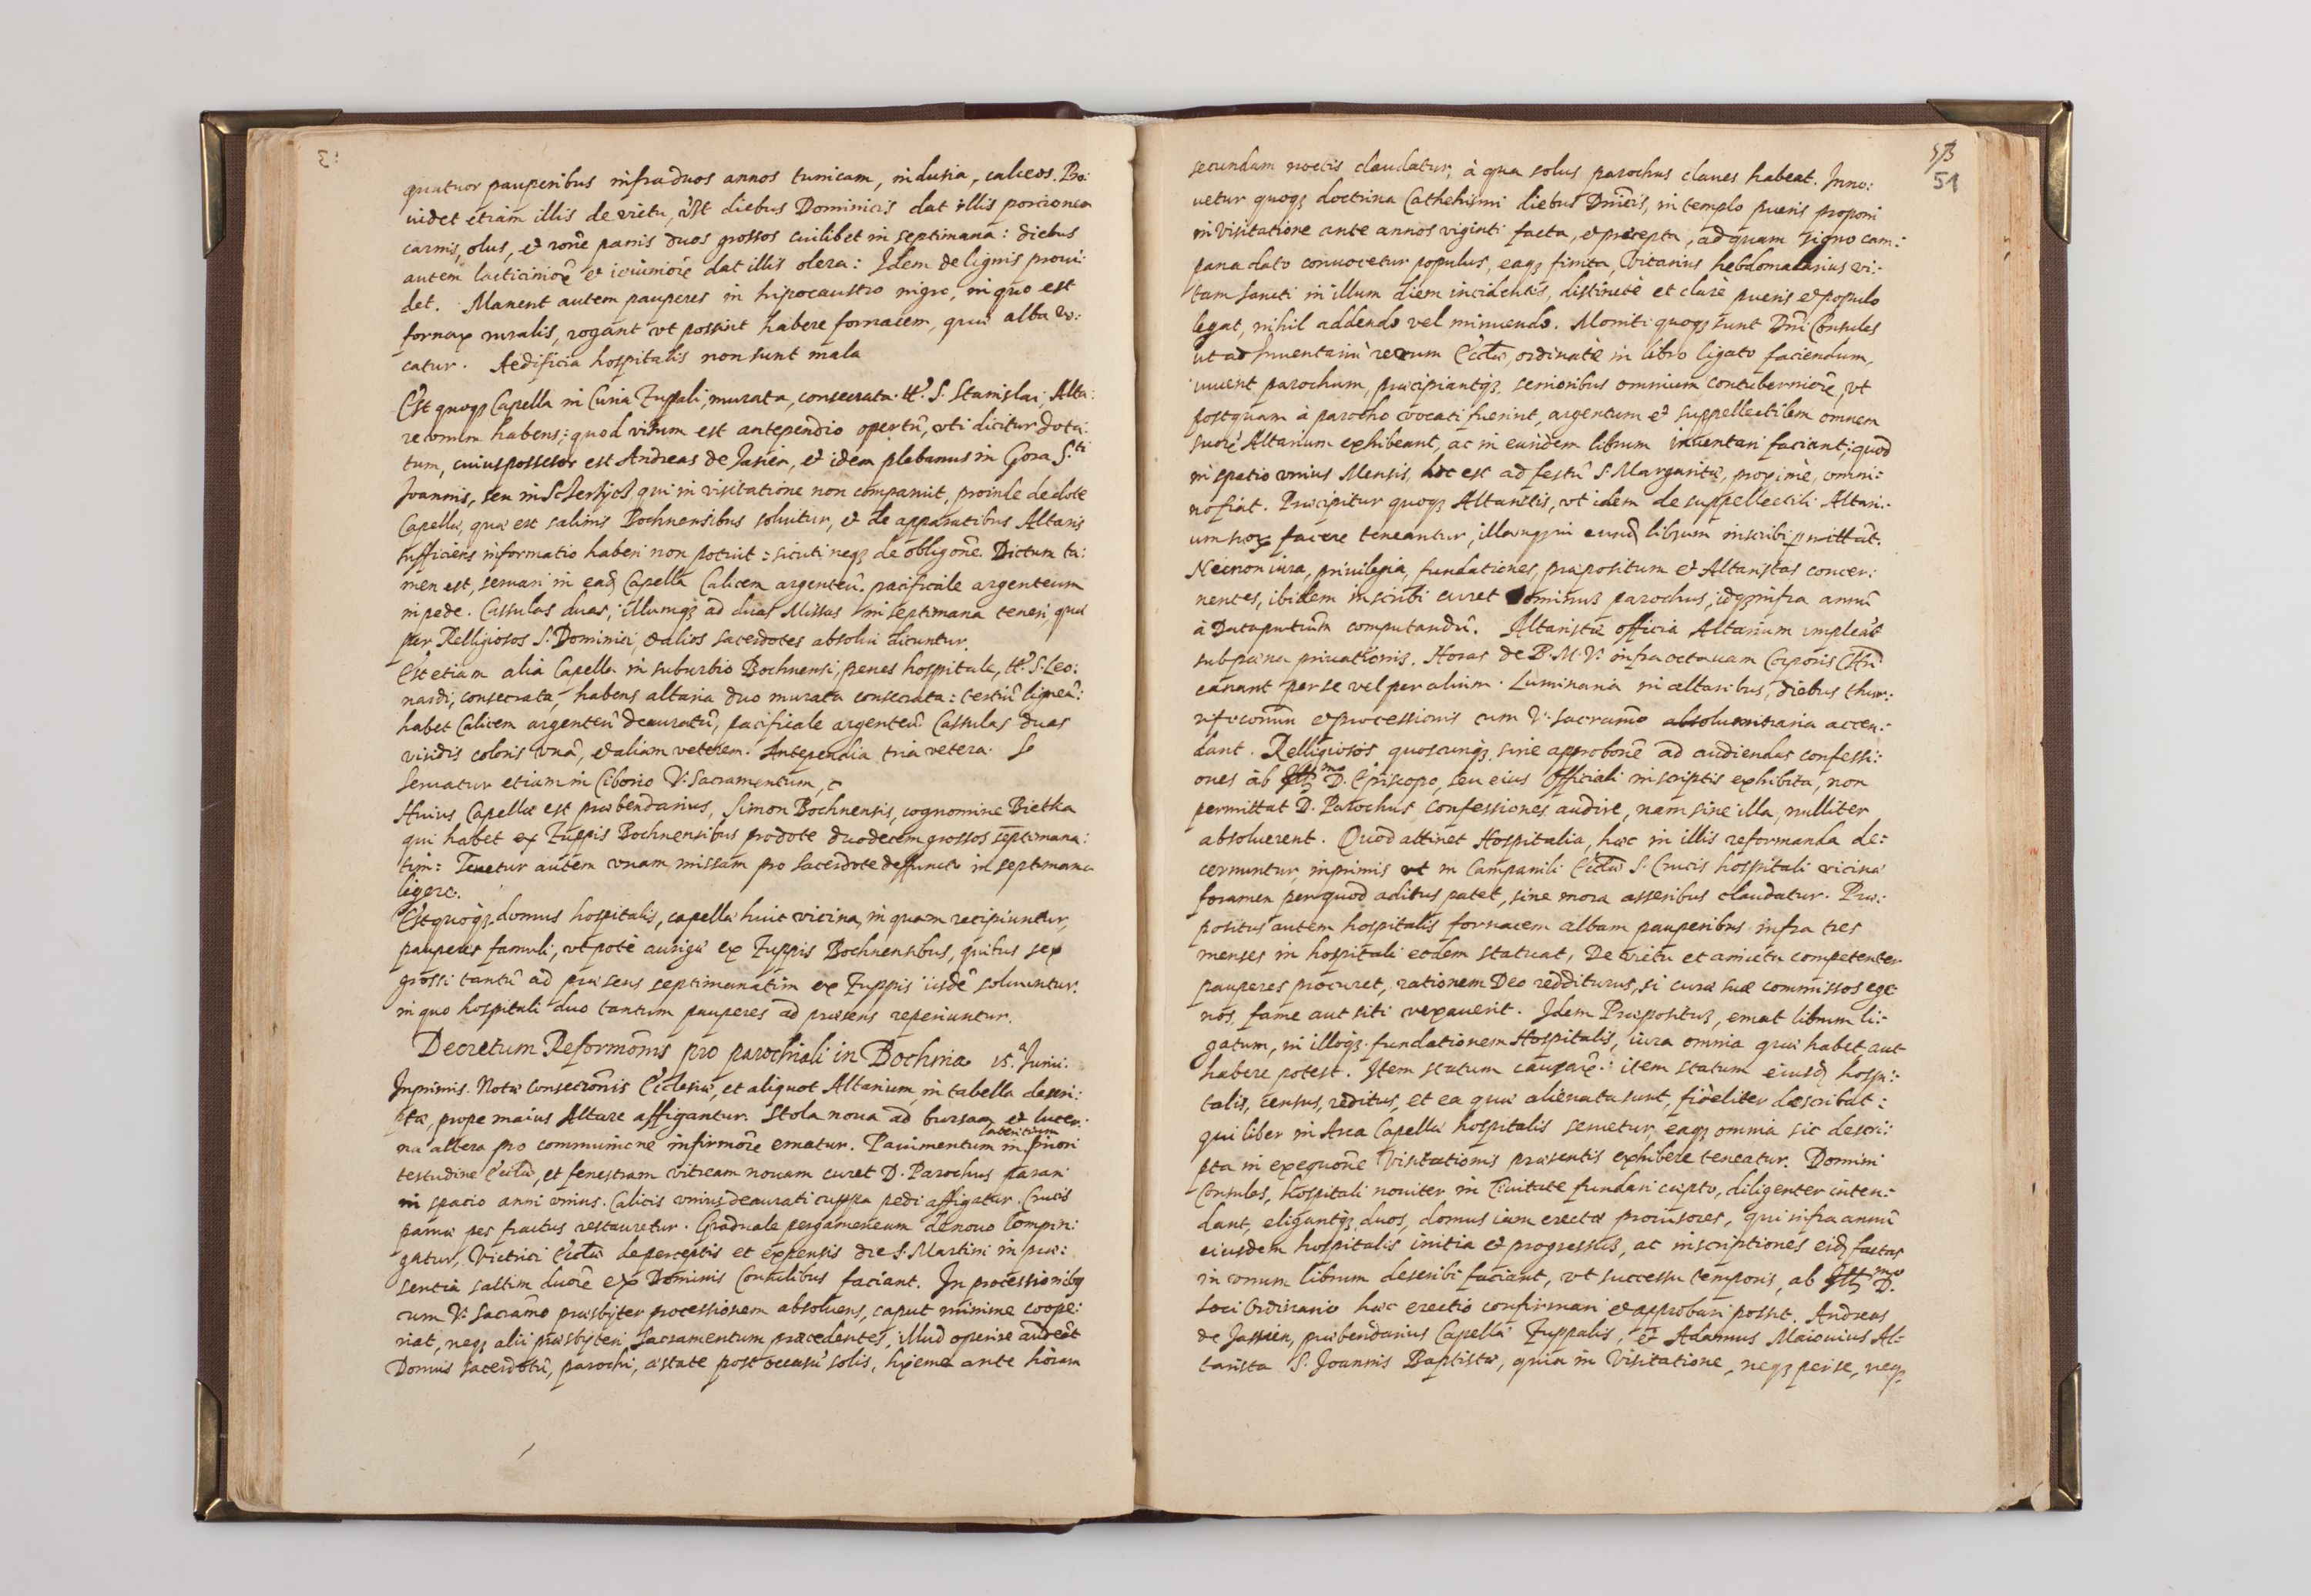 quatuor pauperibus infra duos annos tunicam, indusia, calceos. Pro:
uidet etiam illis de victu, vst diebus Dominicis dat illis porcionem
carnis, olus, et rōne panis duos grossos cuilibet in septimana: diebus
autem lacticiniorē et ieiuniorē dat illis olera: Idem de lignis proui:
det. Manent autem pauperes in hipocaustro nigro, in quo est
fornax ruralis, rogant vt possint habere fornacem, quæ alba vo:
catur. Aedificia hospitalis non sunt mala
Est quoqз Capella in Curia Zuppali, murata, consecrata. tt. S. Stanislai, Alta:
re unum habens; quod visum est antependio opertū, vti dicitur dota:
tum, cuius possesor est Andreas de Jasien, et idem plebanus in Gora S.ti
Joannis, seu in qui in visitatione non comparuit, proinde de dote
Capellæ, quæ est salinis Bochnensibus soluitur, et de apparatibus Altaris
sufficiens informatio haberi non potuit: sicuti neqз de obligōne. Dictum ta:
men est, seruari in eadз Capella Calicem argenteū. pacificale argenteum
in pede. Cassulas duas, illumqз ad duas Missas in septimana teneri, quæ
per Relligiosos S. Dominici, et alios sacerdotes absolui dicuntur.
Est etiam alia Capella in suburbio Bochnensi, penes hospitale, tt. S. Leo:
nardi, consecrata, habens altaria duo murata consecrata: tertiū ligneū:
habet Calicem argenteū deauratū, pacificale argenteū Cassulas duas
viridis coloris vnā, et aliam veterem. Antependia tria vetera. So
Seruatur etiam in Ciborio V. Sacramentum,
Huius Capellæ est præbendarius, Simon Bochnensis, cognomine Bietka
qui habet ex Zuppis Bochnensibus pro dote duodecem grossos septimana:
tim: Tenetur autem vnam missam pro sacerdote deffuncto in septimana
legere.
Est quoqз domus hospitalis, capellæ huic vicina, in quam recipiuntur,
pauperes famuli, vt potè aurigæ ex Zuppis Bochnensibus, quibus sex
grossi tantū ad præsens septimanatim ex Zuppis iisdē soluuntur.
in quo hospitali duo tantum pauperes ad præsens reperiuntur.
Decretum Reformōnis pro parochiali in Bochnia 15.a Junii:
Inprimis. Notæ consecrōnis Ecclesiæ, et aliquot Altarium, in tabella descri:
ptæ, prope maius Altare affigantur. Stola noua ad bursam et lucer:
na altera pro communione infirmorē ematur. Pauimentum lateritium in priori
testudine Ecclæ, et fenestram vitream nouam curet D. Parochus parari
in spacio anni vnius. Calicis vnius deaurati cuppa pedi affigatur. Crucis
paruæ pes fractus restauretur. Graduale pergameneum denouo compin:
gatur, Vitrici Ecclæ de perceptis et expensis die S. Martini in præ:
sentia saltim duorē ex Dominis Consulibus faciant. In processionibз
cum V. Sacramō præsbyter processionem absoluens, caput minime coope:
riat, neqз alii præsbyteri Sacramentum præcedentes, illud operire audeāt
Domus sacerdotū, parochi, æstate post occasū solis, hyeme ante horam
53
51
secundam noctis claudatur, à qua solus parochus claues habeat. Inno:
uetur quoqз doctrina Cathehismi diebus Dnicis, in templo pueris proponi
in Visitatione ante annos viginti facta, et præcepta, ad quam signo cam:
pana dato conuocetur populus, eaqз finita, Vicarius hebdomadarius vi:
tam Sancti in illum diem incidentis, distincte et clarè pueris et populo
legat, nihil addendo vel minuendo. Moniti quoqз sunt Dni Consules
ut ad Inuentariū rerum Ecclæ, ordinatè in libro ligato faciendum,
iuuent parochum, præcipiantqз senioribus omnium contuberniorē, vt
postquam à parocho vocati fuerint, argentum et suppellectilem omnem
suorē Altarium exhibeant, ac in eundem librum inuentari faciant; quod
in spatio vnius Mensis, hoc est ad festū S. Margaritæ, proximè, omni:
no fiat. Præcipitur quoqз Altaristis, vt idem de suppellectili Altari:
um suorē facere teneantur, illamqз in eundз librum inscribi pmittāt.
Necnon iura, priuilegia, fundationes, præpositum et Altaristas concer:
nentes, ibidem inscribi curet Dominus parochus, idqз infra annū
à Data putiūm computandū. Altaristæ officia Altarium impleāt
sub pæna priuationis. Horas de B. M. V. infra octauam Corporis Chri
canant per se vel per alium. Luminaria in altaribus, diebus thur:
rificōnum et processionis cum V. Sacramō absolu accen:
dant. Relligiosos quoscunqз sine approbōne ad audiendas confessi:
ones ab Illmo D. Episcopo, seu eius Officiali in scriptis exhibita, non
permittat D. Parochus confessiones audire, nam sine illa, nulliter
absoluerent. Quod attinet Hospitalia, hæc in illis reformanda de:
cernuntur, inprimis vt in Campanili Ecclæ S. Crucis hospitali vicinæ
foramen per quod aditus patet, sine mora asseribus claudatur. Præ:
positus autem hospitalis fornacem albam pauperibus infra tres
menses in hospitali eodem statuat, De victu et amictu competenter
pauperes procuret, rationem Deo redditurus, si curæ suæ commissos ege
nos, fame aut siti vexauerit. Idem Præpositus, emat librum li:
gatum, in illoqз fundationem Hospitalis, iura omnia quæ habet, aut
habere potest. Item statum item statum eiusdз hospi:
talis, census, reditus, et ea quæ alienata sunt, fideliter describat:
qui liber in Arca Capellæ hospitalis seruetur, eaqз omnia sic descri:
pta in exequōne Visitationis præsentis exhibere teneatur. Domini
Consules, hospitali nouiter in Ciuitate fundari cæpto, diligenter inten:
dant, eligantqз duos, domus iam erectæ prouisores, qui infra annū
eiusdem hospitalis initia et progressus, ac inscriptiones eidз factas
in vnum librum describi faciant, vt successu temporis, ab Illmo D.
Loci Ordinario hæc erectio confirmari et approbari possit. Andreas
de Jassien, præbendarius Capellæ Zuppalis, et Adamus Maiouius Al:
tarista S. Joannis Baptistæ, quia in Visitatione, neqз per se, neqз